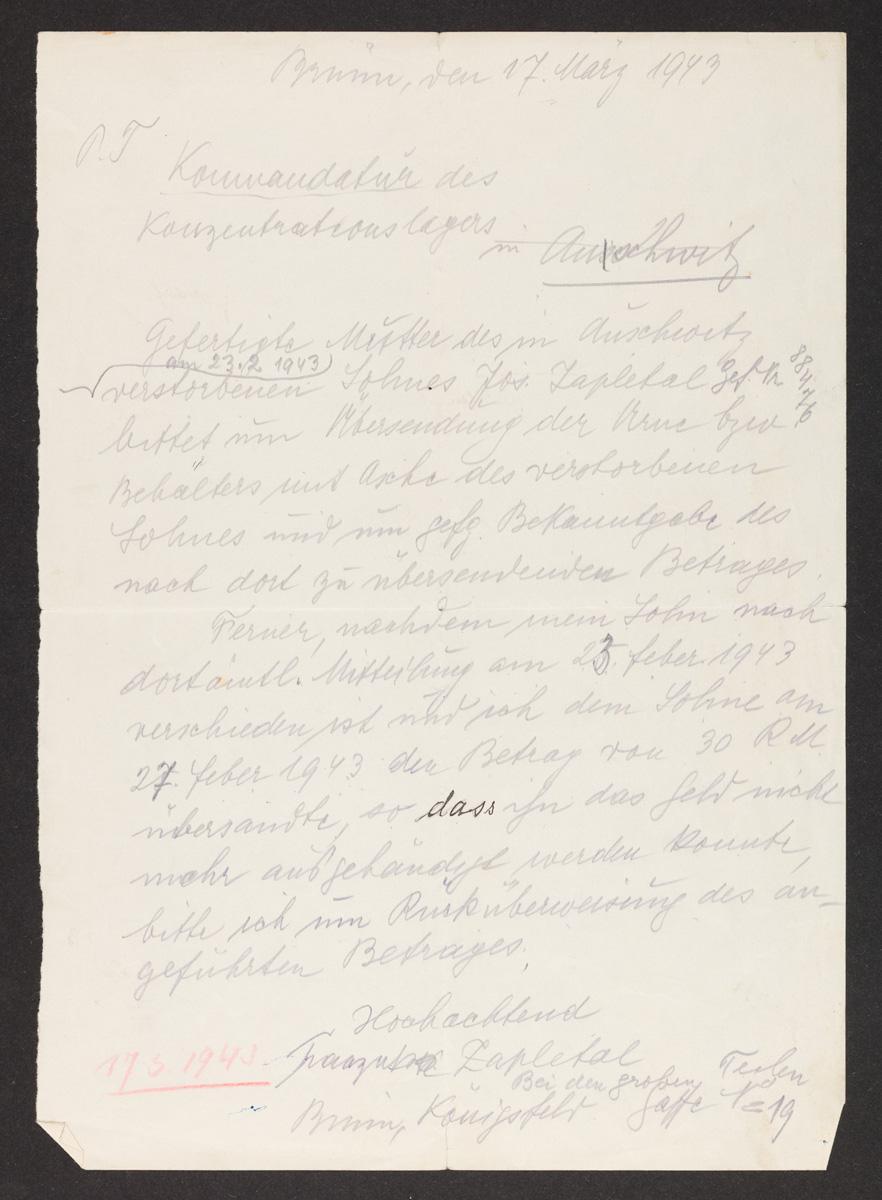 Brünn, den 17. März 1943
P.T
Kommandatur des
Konzentrationslagers
in Auschwitz
Gefertigte Mutter des in Auschwitz
am 23.2 1943
verstorbenen Sohnes Jos. Zapletal Gef. Nr
bittet um Übersendung der Urne bzw
Behälters mit Asche des verstorbenen
Sohnes und um gefg. Bekanntgabe des
nach dort zu übersendenden Betrages.
Ferner, nachdem mein Sohn nach
dortämtl. Mitteilung am 23. Feber 1943
verschieden ist und ich dem Sohne am
27. Feber 1943 den Betrag von 30 RM
übersandte, so dass ihn das Geld nicht
mehr ausgehändigt werden konnte,
bitte ich um Rücküberweisung des an-
geführten Betrages.
Hochachtend
17 3. 1943 Zapletal
Bei den großen Teilen
Brünn, Königsfeld Gasse No 19